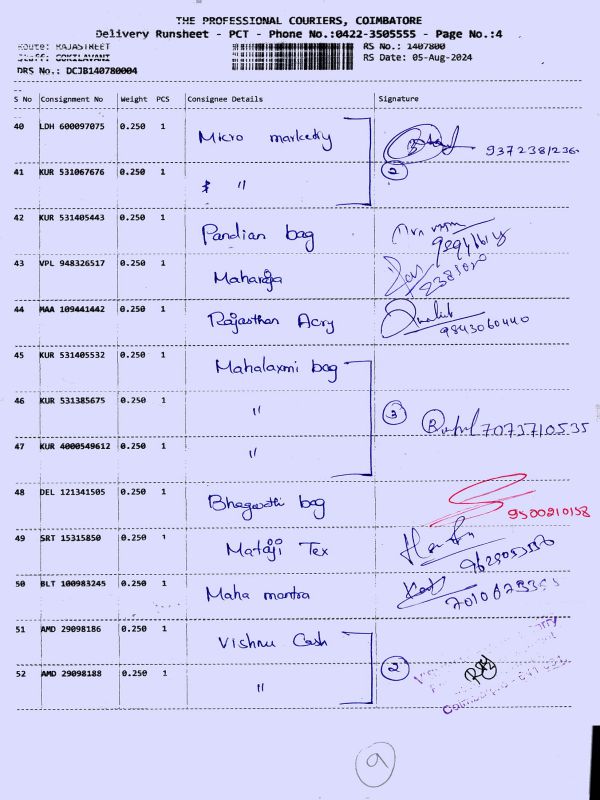 THE PROFESSIONAL COURIERS, COIMBATORE
Delivery Runsheet - PCT - Phone No.:0422-3505555 - Page No.:4
Route: RAJASTREET
RS No.: 1407800
Staff: GOKILAVANI
RS Date: 05-Aug-2024
DRS No.: DCJB140780004
S No Consignment No Weight PCS Consignee Details Signature
40 LDH 600097075 0.250 1 Micro marketing 9372381236
41 KUR 531067676 0.250 1 " 2
42 KUR 531405443 0.250 1 Pandian bag
43 VPL 948326517 0.250 1 Maharaja
44 MAA 109441442 0.250 1 Rajasthan Acry 9843060440
45 KUR 531405532 0.250 1 Mahalaxmi bag
46 KUR 531385675 0.250 1 " 3 Rahul 7073710535
47 KUR 4000549612 0.250 1 "
48 DEL 121341505 0.250 1 Bhagavathi bag 9500210158
49 SRT 15315850 0.250 1 Mataji Tex
50 BLT 100983245 0.250 1 Maha mantra
51 AMD 29098186 0.250 1 Vishnu Cash
52 AMD 29098188 0.250 1 " 2
9